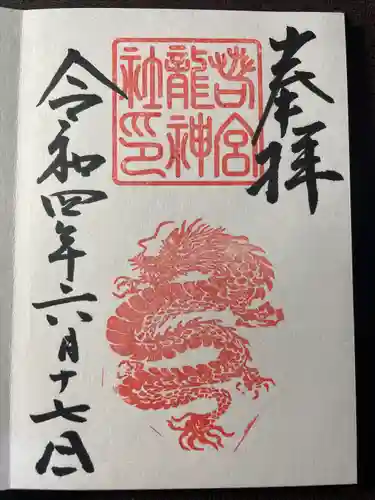 奉拝
若宮
龍神
社印
令和四年六月十七日